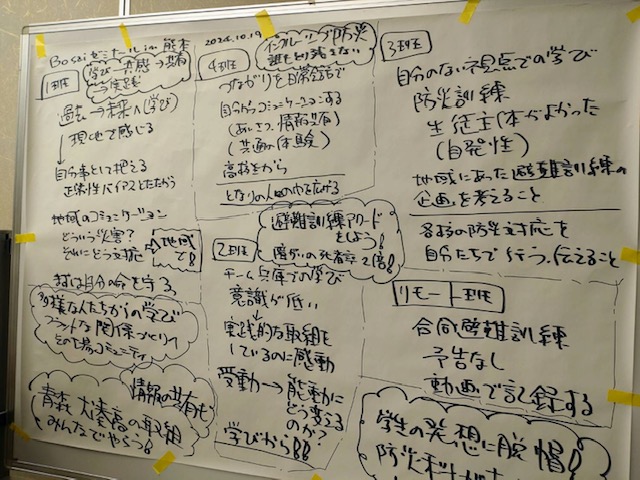 Bosaiゼミナール in 熊本
2024.10.19
1班
学び→共感→共有
過去→未来へ(学び)
現地で感じる
自分事として捉える
正常性バイアスとたたかう
地域のコミュニケーション
どういう災害?
それにどう対応
地域で!
まずは自分の命を守る
多様な人たちからの学び
フラットな関係づくりして
情報の共有化
青森 大湊高の取組
みんなでやろう!
4班
インクルーシブ防災
誰も取り残さない
つながりを日常会話で
自分からコミュニケーションする
(あいさつ、情報共有)
(共通の体験)
高校生から
となりの人の
避難訓練アワード
をしよう!
障がい の死者率2倍!
2班
チーム兵庫での学び
意識が低い
実践的な取組を
しているのに感動
受動→能動に
どう変える
のか?
学びから!!
3班
自分のない視点での学び
防災訓練
生徒主体がよかった
(自発性)
地域にあった避難訓練の
企画を考えること
各校の防災対応を
自分たちで行う、伝えること
リモート班
合同避難訓練
予告なし
動画で記録する
学生の発想に脱帽!
防災科が